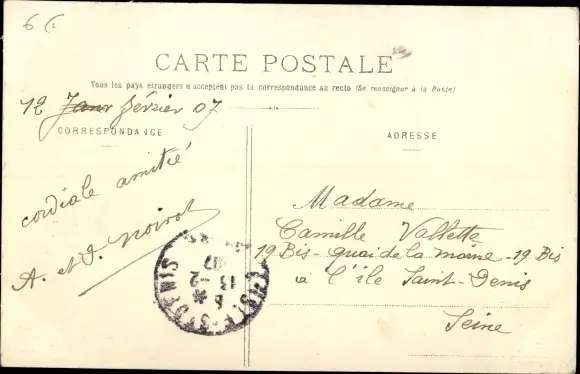 6 c
CARTE POSTALE
Tous les pays étrangers n'acceptent pas la correspondance au recto (Se renseigner à la Poste)
12 Janr février 07
CORRESPONDANCE
cordiale amitié
A. et J. Noirot
ADRESSE
Madame
Camille Vallette
19 Bis - quai de la marne - 19 Bis
a l'île Saint-Denis
Seine
13 -2
07